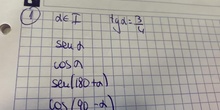 1 α∈I tgα=3/4
sen α
cos α
sen(180+α)
cos(90-α)